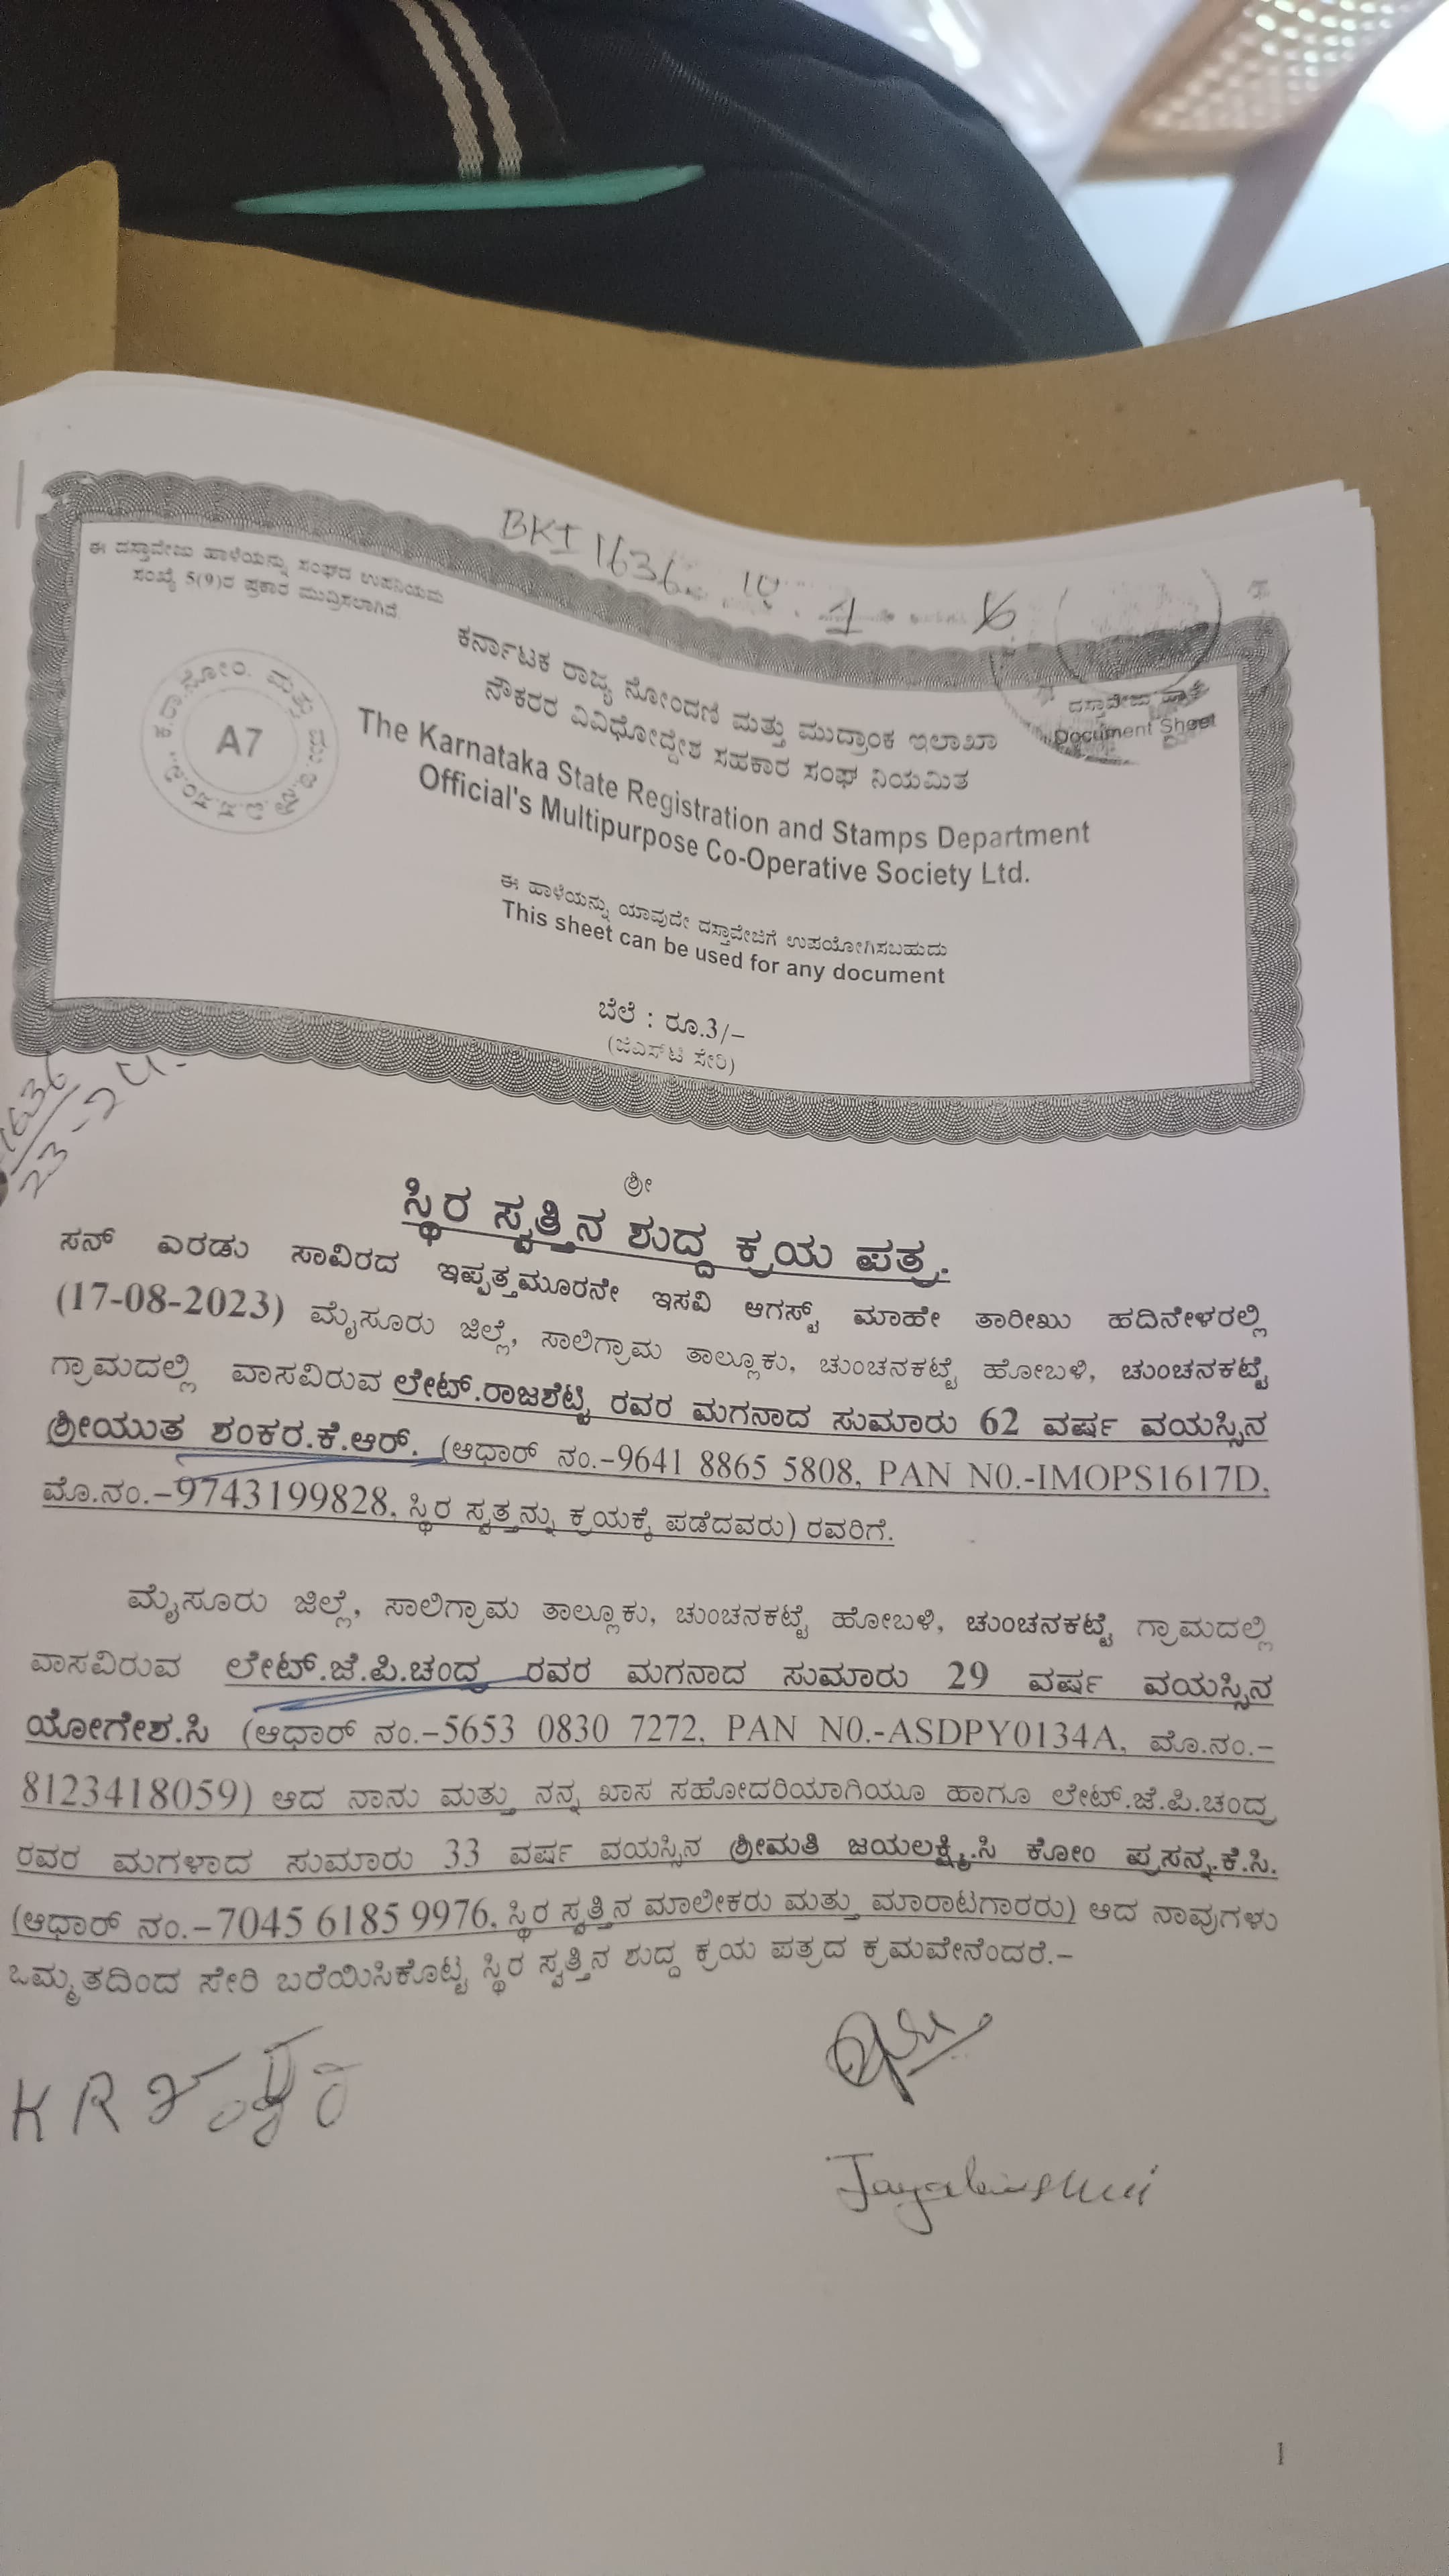 BKI 1636
1 6
ಈ ದಸ್ತಾವೇಜು ಹಾಳೆಯನ್ನು ಸಂಘದ ಉಪನಿಯಮ
ಸಂಖ್ಯೆ 5(9)ರ ಪ್ರಕಾರ ಮುದ್ರಿಸಲಾಗಿದೆ.
A7
ಕರ್ನಾಟಕ ರಾಜ್ಯ ನೋಂದಣಿ ಮತ್ತು ಮುದ್ರಾಂಕ ಇಲಾಖಾ
ನೌಕರರ ವಿವಿಧೋದ್ದೇಶ ಸಹಕಾರ ಸಂಘ ನಿಯಮಿತ
ದಸ್ತಾವೇಜು ಹಾಳೆ
Document Sheet
The Karnataka State Registration and Stamps Department
Official's Multipurpose Co-Operative Society Ltd.
ಈ ಹಾಳೆಯನ್ನು ಯಾವುದೇ ದಸ್ತಾವೇಜಿಗೆ ಉಪಯೋಗಿಸಬಹುದು
This sheet can be used for any document
ಬೆಲೆ : ರೂ.3/–
(ಜಿಎಸ್‌ಟಿ ಸೇರಿ)
1636
23-24.
ಶ್ರೀ
ಸ್ಥಿರ ಸ್ವತ್ತಿನ ಶುದ್ದ ಕ್ರಯ ಪತ್ರ.
ಸನ್ ಎರಡು ಸಾವಿರದ ಇಪ್ಪತ್ತಮೂರನೇ ಇಸವಿ ಆಗಸ್ಟ್ ಮಾಹೇ ತಾರೀಖು ಹದಿನೇಳರಲ್ಲಿ
(17-08-2023) ಮೈಸೂರು ಜಿಲ್ಲೆ, ಸಾಲಿಗ್ರಾಮ ತಾಲ್ಲೂಕು, ಚುಂಚನಕಟ್ಟೆ ಹೋಬಳಿ, ಚುಂಚನಕಟ್ಟೆ
ಗ್ರಾಮದಲ್ಲಿ ವಾಸವಿರುವ ಲೇಟ್.ರಾಜಶೆಟ್ಟಿ ರವರ ಮಗನಾದ ಸುಮಾರು 62 ವರ್ಷ ವಯಸ್ಸಿನ
ಶ್ರೀಯುತ ಶಂಕರ.ಕೆ.ಆರ್. (ಆಧಾರ್ ನಂ.–9641 8865 5808, PAN N0.-IMOPS1617D,
ಮೊ.ನಂ.–9743199828, ಸ್ಥಿರ ಸ್ವತ್ತನ್ನು ಕ್ರಯಕ್ಕೆ ಪಡೆದವರು) ರವರಿಗೆ.
ಮೈಸೂರು ಜಿಲ್ಲೆ, ಸಾಲಿಗ್ರಾಮ ತಾಲ್ಲೂಕು, ಚುಂಚನಕಟ್ಟೆ ಹೋಬಳಿ, ಚುಂಚನಕಟ್ಟೆ ಗ್ರಾಮದಲ್ಲಿ
ವಾಸವಿರುವ ಲೇಟ್.ಜೆ.ಪಿ.ಚಂದ್ರ ರವರ ಮಗನಾದ ಸುಮಾರು 29 ವರ್ಷ ವಯಸ್ಸಿನ
ಯೋಗೇಶ.ಸಿ (ಆಧಾರ್ ನಂ.–5653 0830 7272, PAN N0.-ASDPY0134A, ಮೊ.ನಂ.–
8123418059) ಆದ ನಾನು ಮತ್ತು ನನ್ನ ಖಾಸ ಸಹೋದರಿಯಾಗಿಯೂ ಹಾಗೂ ಲೇಟ್.ಜೆ.ಪಿ.ಚಂದ್ರ
ರವರ ಮಗಳಾದ ಸುಮಾರು 33 ವರ್ಷ ವಯಸ್ಸಿನ ಶ್ರೀಮತಿ ಜಯಲಕ್ಷ್ಮಿ.ಸಿ ಕೋಂ ಪ್ರಸನ್ನ.ಕೆ.ಸಿ.
(ಆಧಾರ್ ನಂ.–7045 6185 9976, ಸ್ಥಿರ ಸ್ವತ್ತಿನ ಮಾಲೀಕರು ಮತ್ತು ಮಾರಾಟಗಾರರು) ಆದ ನಾವುಗಳು
ಒಮ್ಮತದಿಂದ ಸೇರಿ ಬರೆಯಿಸಿಕೊಟ್ಟ ಸ್ಥಿರ ಸ್ವತ್ತಿನ ಶುದ್ದ ಕ್ರಯ ಪತ್ರದ ಕ್ರಮವೇನೆಂದರೆ.–
K R
1